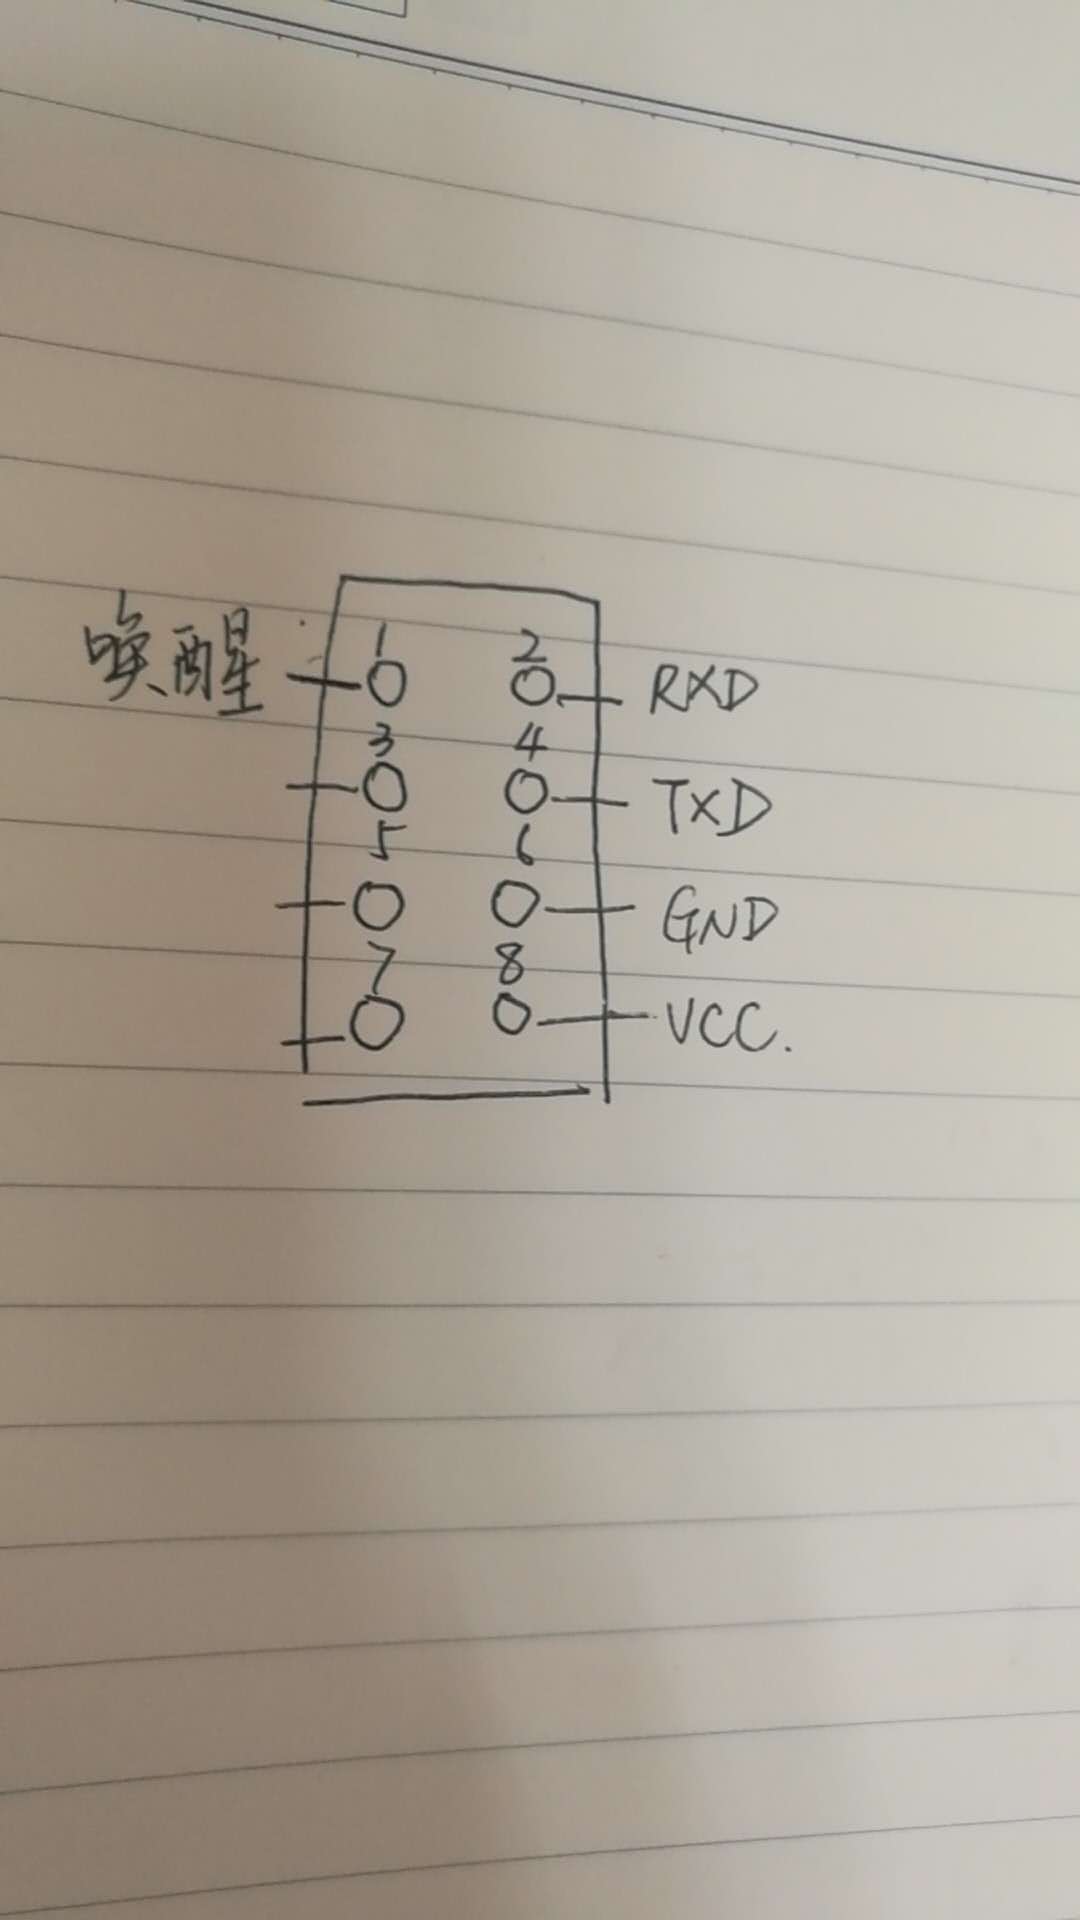 1 2
唤醒 RXD
3 4
TXD
5 6
GND
7 8
VCC.